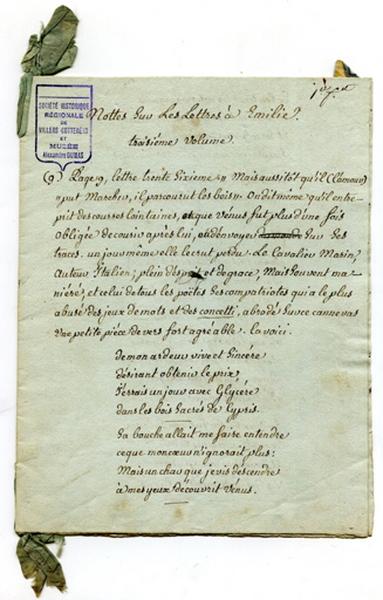 SOCIÉTÉ HISTORIQUE
RÉGIONALE
DE
VILLERS-COTTERÊTS
ET
MUSÉE
Alexandre DUMAS
Nottes Sur Les Lettres à Emilie.
troisième volume.
(9) Page 9, lettre trente Sixieme. " Mais aussitôt qu'il (l'amour)
" put Marcher, il parcourut les bois " On dit même qu'il entre-
prit des courses lointaines, et que Vénus, fut plus d'une fois
Obligée de courir après lui, et d'envoyer Sur Ses
traces. un jour même elle le crut perdu. Le Cavalier Marin,
Auteur Italien; plein d'esprit et de grace, Mais Souvent ma-
niéré, et celui de tous les poëtes Ses compatriotes qui a le plus
abusé des jeux de mots et des concetti, a brodé Sur ce cannevas
une petite pièce de vers fort agréable. la voici.
De mon ardeur vive et Sincère
désirant obtenir le prix
J'errais un jour avec Glycére
dans les bois Sacrés de Cypris.
Sa bouche allait me faire entendre
ce que mon cœur n'ignorait plus:
Mais un char que je vis descendre
à mes yeux découvrit Vénus.